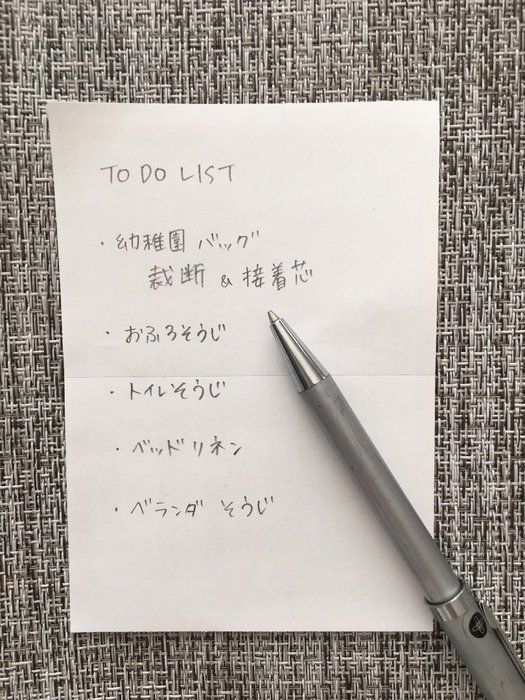 TO DO LIST
・幼稚園 バッグ
裁断 & 接着芯
・おふろそうじ
・トイレそうじ
・ベッドリネン
・ベランダ そうじ